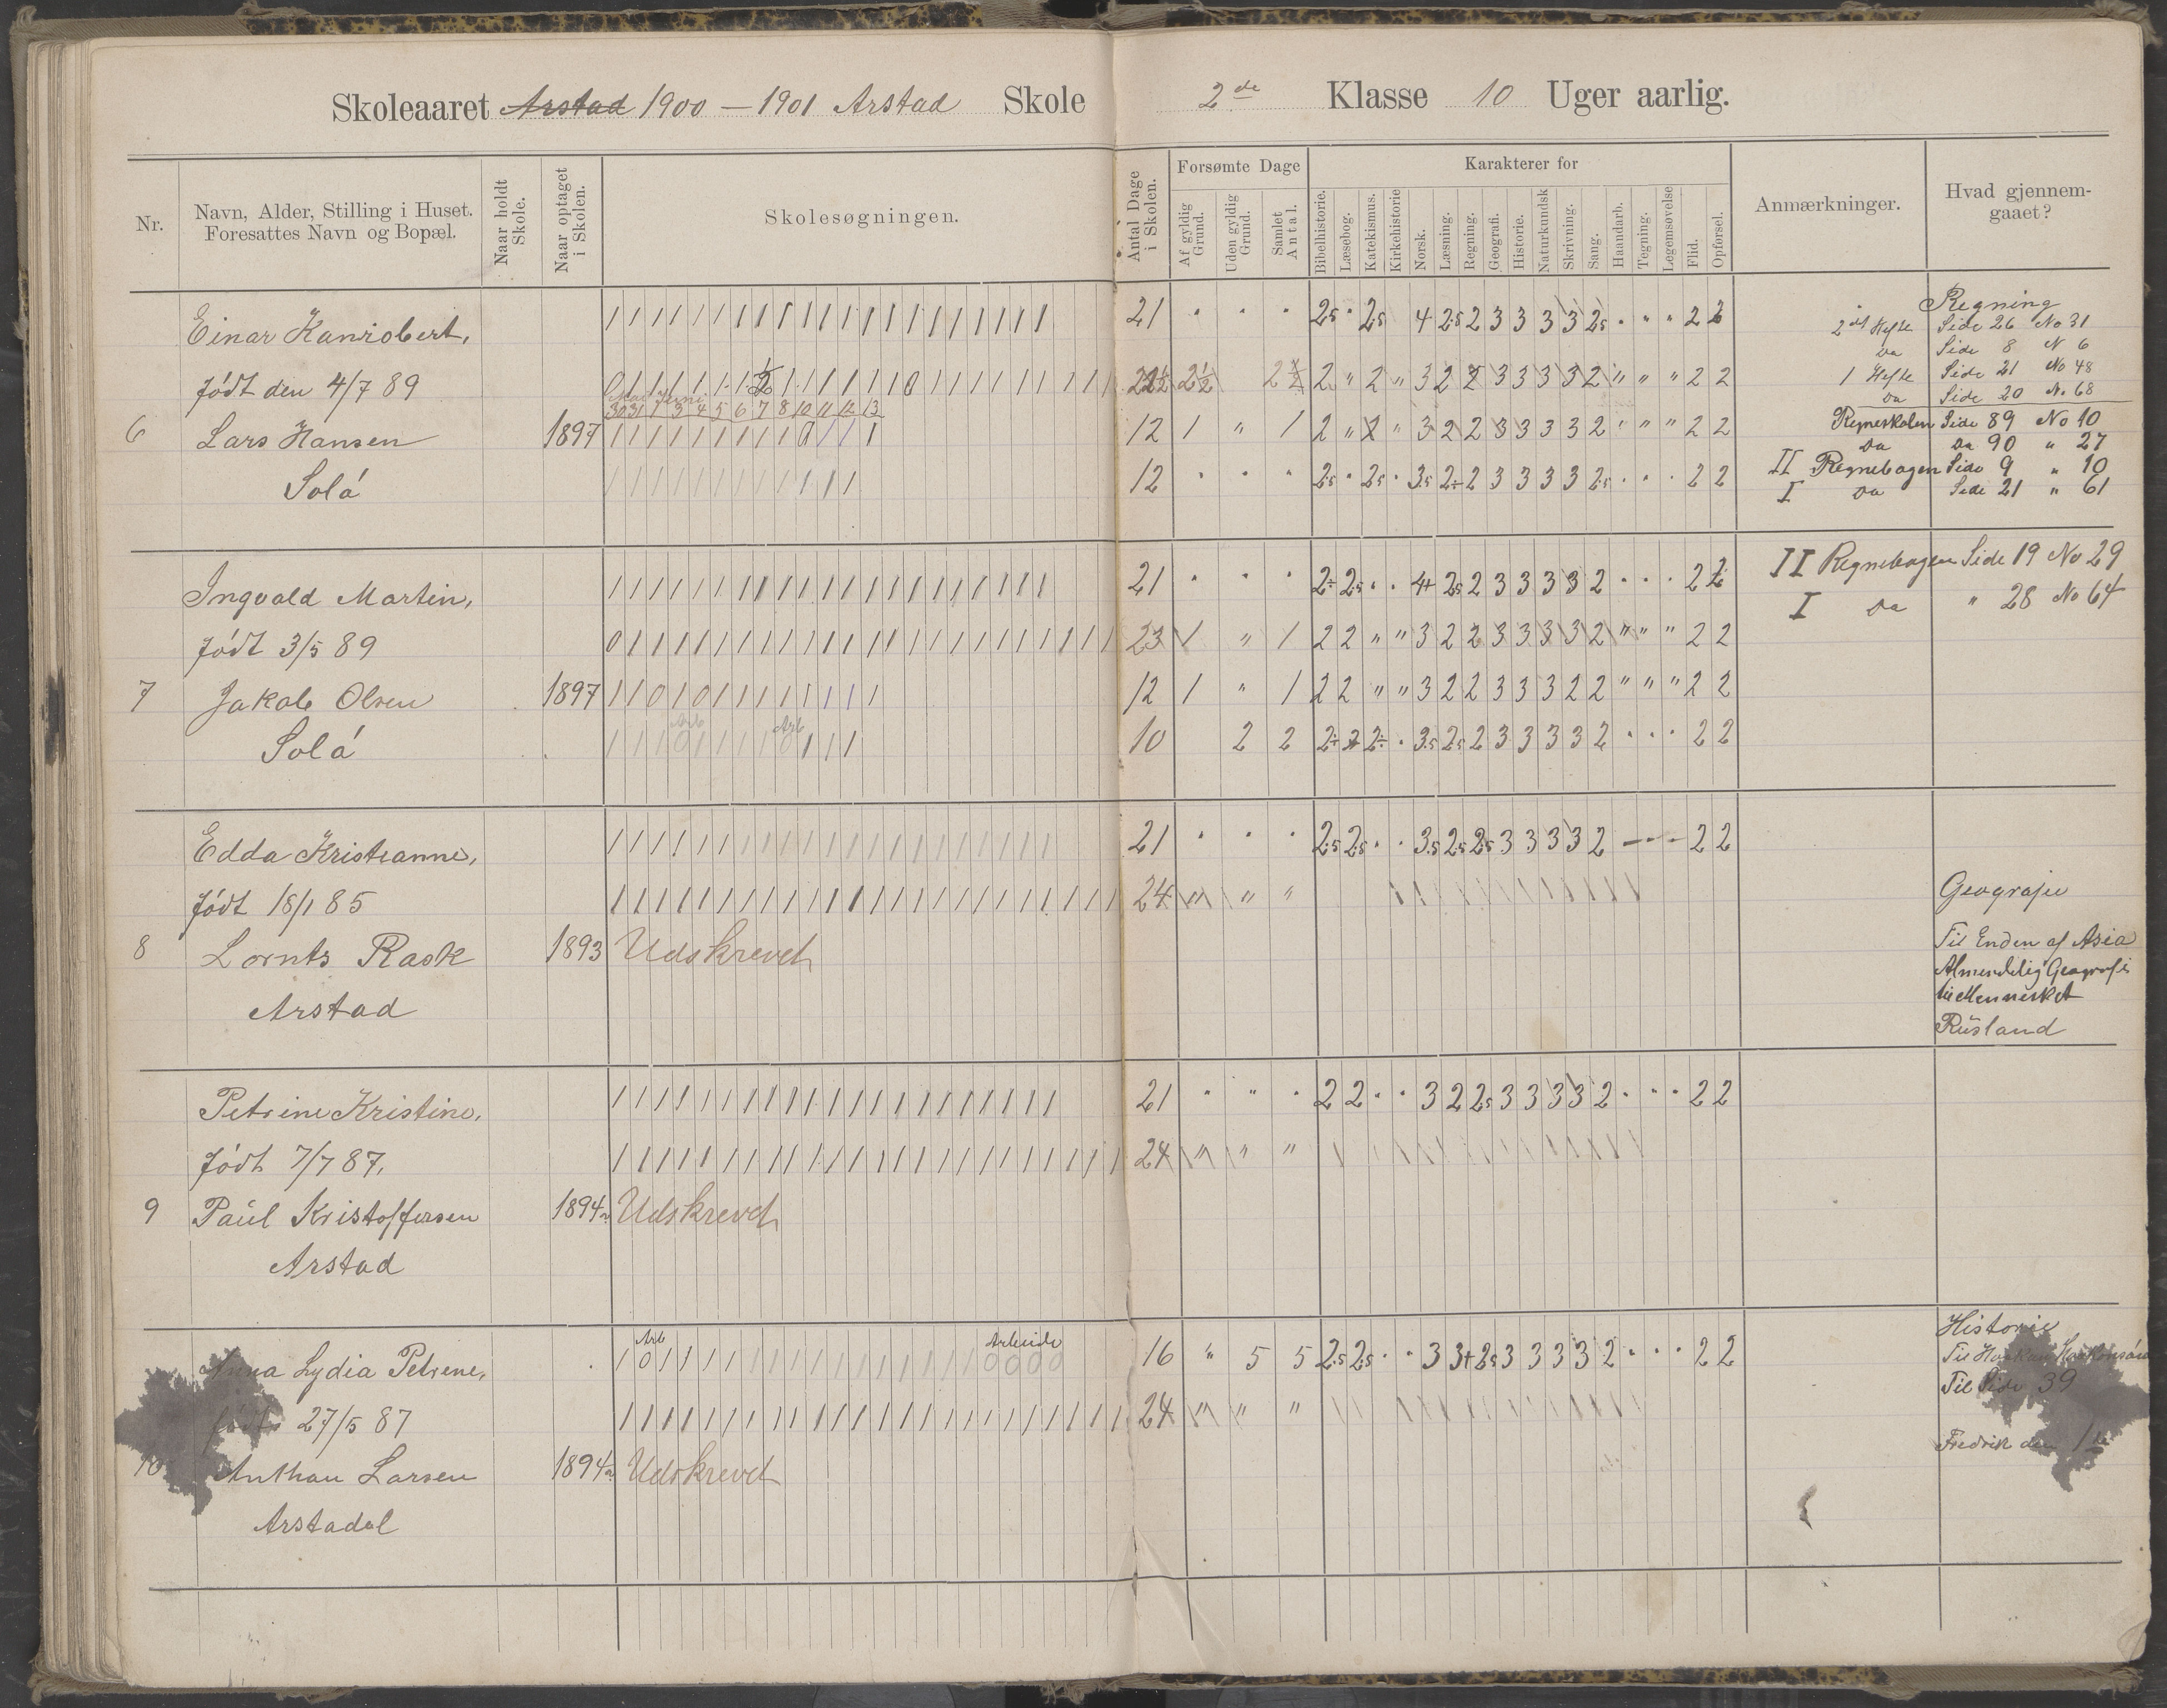 Skoleaaret Arstad 1900 – 1901 Arstad Skole 2de Klasse 10 Uger aarlig.
Nr.
Navn, Alder, Stilling i Huset.
Foresattes Navn og Bopæl.
Naar holdt Skole.
Naar optaget i Skolen.
Skolesøgningen.
Antal Dage i Skolen.
Forsømte Dage
Af gyldig Grund.
Uden gyldig Grund.
Samlet Antal.
Karakterer for
Bibelhistorie.
Læsebog.
Katekismus.
Kirkehistorie
Norsk.
Læsning.
Regning.
Geografi.
Historie.
Naturkundsk
Skrivning.
Sang.
Haandarb.
Tegning.
Legemsøvelse
Flid.
Opførsel.
Anmærkninger.
Hvad gjennem-
gaaet?
Einar Kanrobert, 21 2.5 2.5 4 2.5 2 3 3 3 3 2.5 2 2
født den 4/7 89 2½ 2½ 2 " 2 " 3 2 2 3 3 3 3 2 " " " 2 2
Mai Juni
30 31 1 3 4 5 6 7 8 10 11 12 13
6 Lars Hansen 1897 12 1 " 1 2 " 2 " 3 2 2 3 3 3 3 2 " " " 2 2
Solå 12 2.5 2.5 3.5 2÷ 2 3 3 3 3 2.5 2 2
Regning
2det Hefte Side 26 No 31
Da Side 8 N 6
1 Hefte Side 21 No 48
Da Side 20 No 68
Regneskolen Side 89 No 10
Da Da 90 " 27
II Regnebogen Side 9 " 10
I Da Side 21 " 61
Ingvald Martin, 21 2÷ 2.5 4+ 2.5 2 3 3 3 3 2 2 2
født 3/5 89 23 1 " 1 2 2 " " 3 2 2 3 3 3 3 2 " " " 2 2
7 Jakob Olsen 1897 12 1 " 1 2 2 " " 3 2 2 3 3 3 2 2 " " " 2 2
Arb Arb
Solå 10 2 2 2÷ 2 2÷ 3.5 2.5 2 3 3 3 3 2 2 2
II Regnebogen Side 19 No 29
I Da " 28 No 64
Edda Kristianne, 21 2.5 2.5 3.5 2.5 2.5 3 3 3 3 2 2 2
født 18/1 85 24 " " "
8 Lornts Rask 1893 Udskrevet
Arstad
Geografi
Til Enden af Asia
Almendelig Geografi
til Mennesket
Rusland
Petrine Kristine, 21 2 2 3 2 2.5 3 3 3 3 2 2 2
født 7/7 87, 24 " " "
9 Paul Kristoffersen 1894 Udskrevet
Arstad
Arb Arbeide
Anna Lydia Petrene, 16 " 5 5 2.5 2.5 3 3+ 2.5 3 3 3 3 2 2 2
født 27/5 87 24 " " "
10 Anthon Larsen 1894 Udskrevet
Arstadal
Historie
Til Haakon
Til Side 39
Fredrik den 1ste